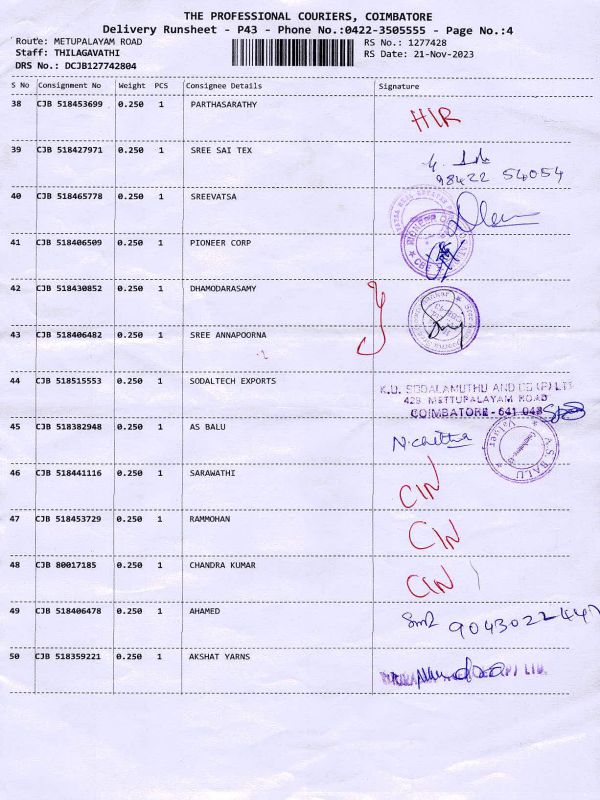 THE PROFESSIONAL COURIERS, COIMBATORE
Delivery Runsheet - P43 - Phone No.:0422-3505555 - Page No.:4
Route: METUPALAYAM ROAD
RS No.: 1277428
Staff: THILAGAVATHI
RS Date: 21-Nov-2023
DRS No.: DCJB127742804
S No Consignment No Weight PCS Consignee Details Signature
38 CJB 518453699 0.250 1 PARTHASARATHY
HIR
39 CJB 518427971 0.250 1 SREE SAI TEX
98422 54054
40 CJB 518465778 0.250 1 SREEVATSA
41 CJB 518406509 0.250 1 PIONEER CORP
42 CJB 518430852 0.250 1 DHAMODARASAMY
43 CJB 518406482 0.250 1 SREE ANNAPOORNA
44 CJB 518515553 0.250 1 SODALTECH EXPORTS
K.U. SODALAMUTHU AND CO (P) LTD
429 METTUPALAYAM ROAD
COIMBATORE - 641 043
45 CJB 518382948 0.250 1 AS BALU
N. Chitha
A.S. BALU
46 CJB 518441116 0.250 1 SARAWATHI
CIN
47 CJB 518453729 0.250 1 RAMMOHAN
CIN
48 CJB 80017185 0.250 1 CHANDRA KUMAR
CIN
49 CJB 518406478 0.250 1 AHAMED
50 CJB 518359221 0.250 1 AKSHAT YARNS